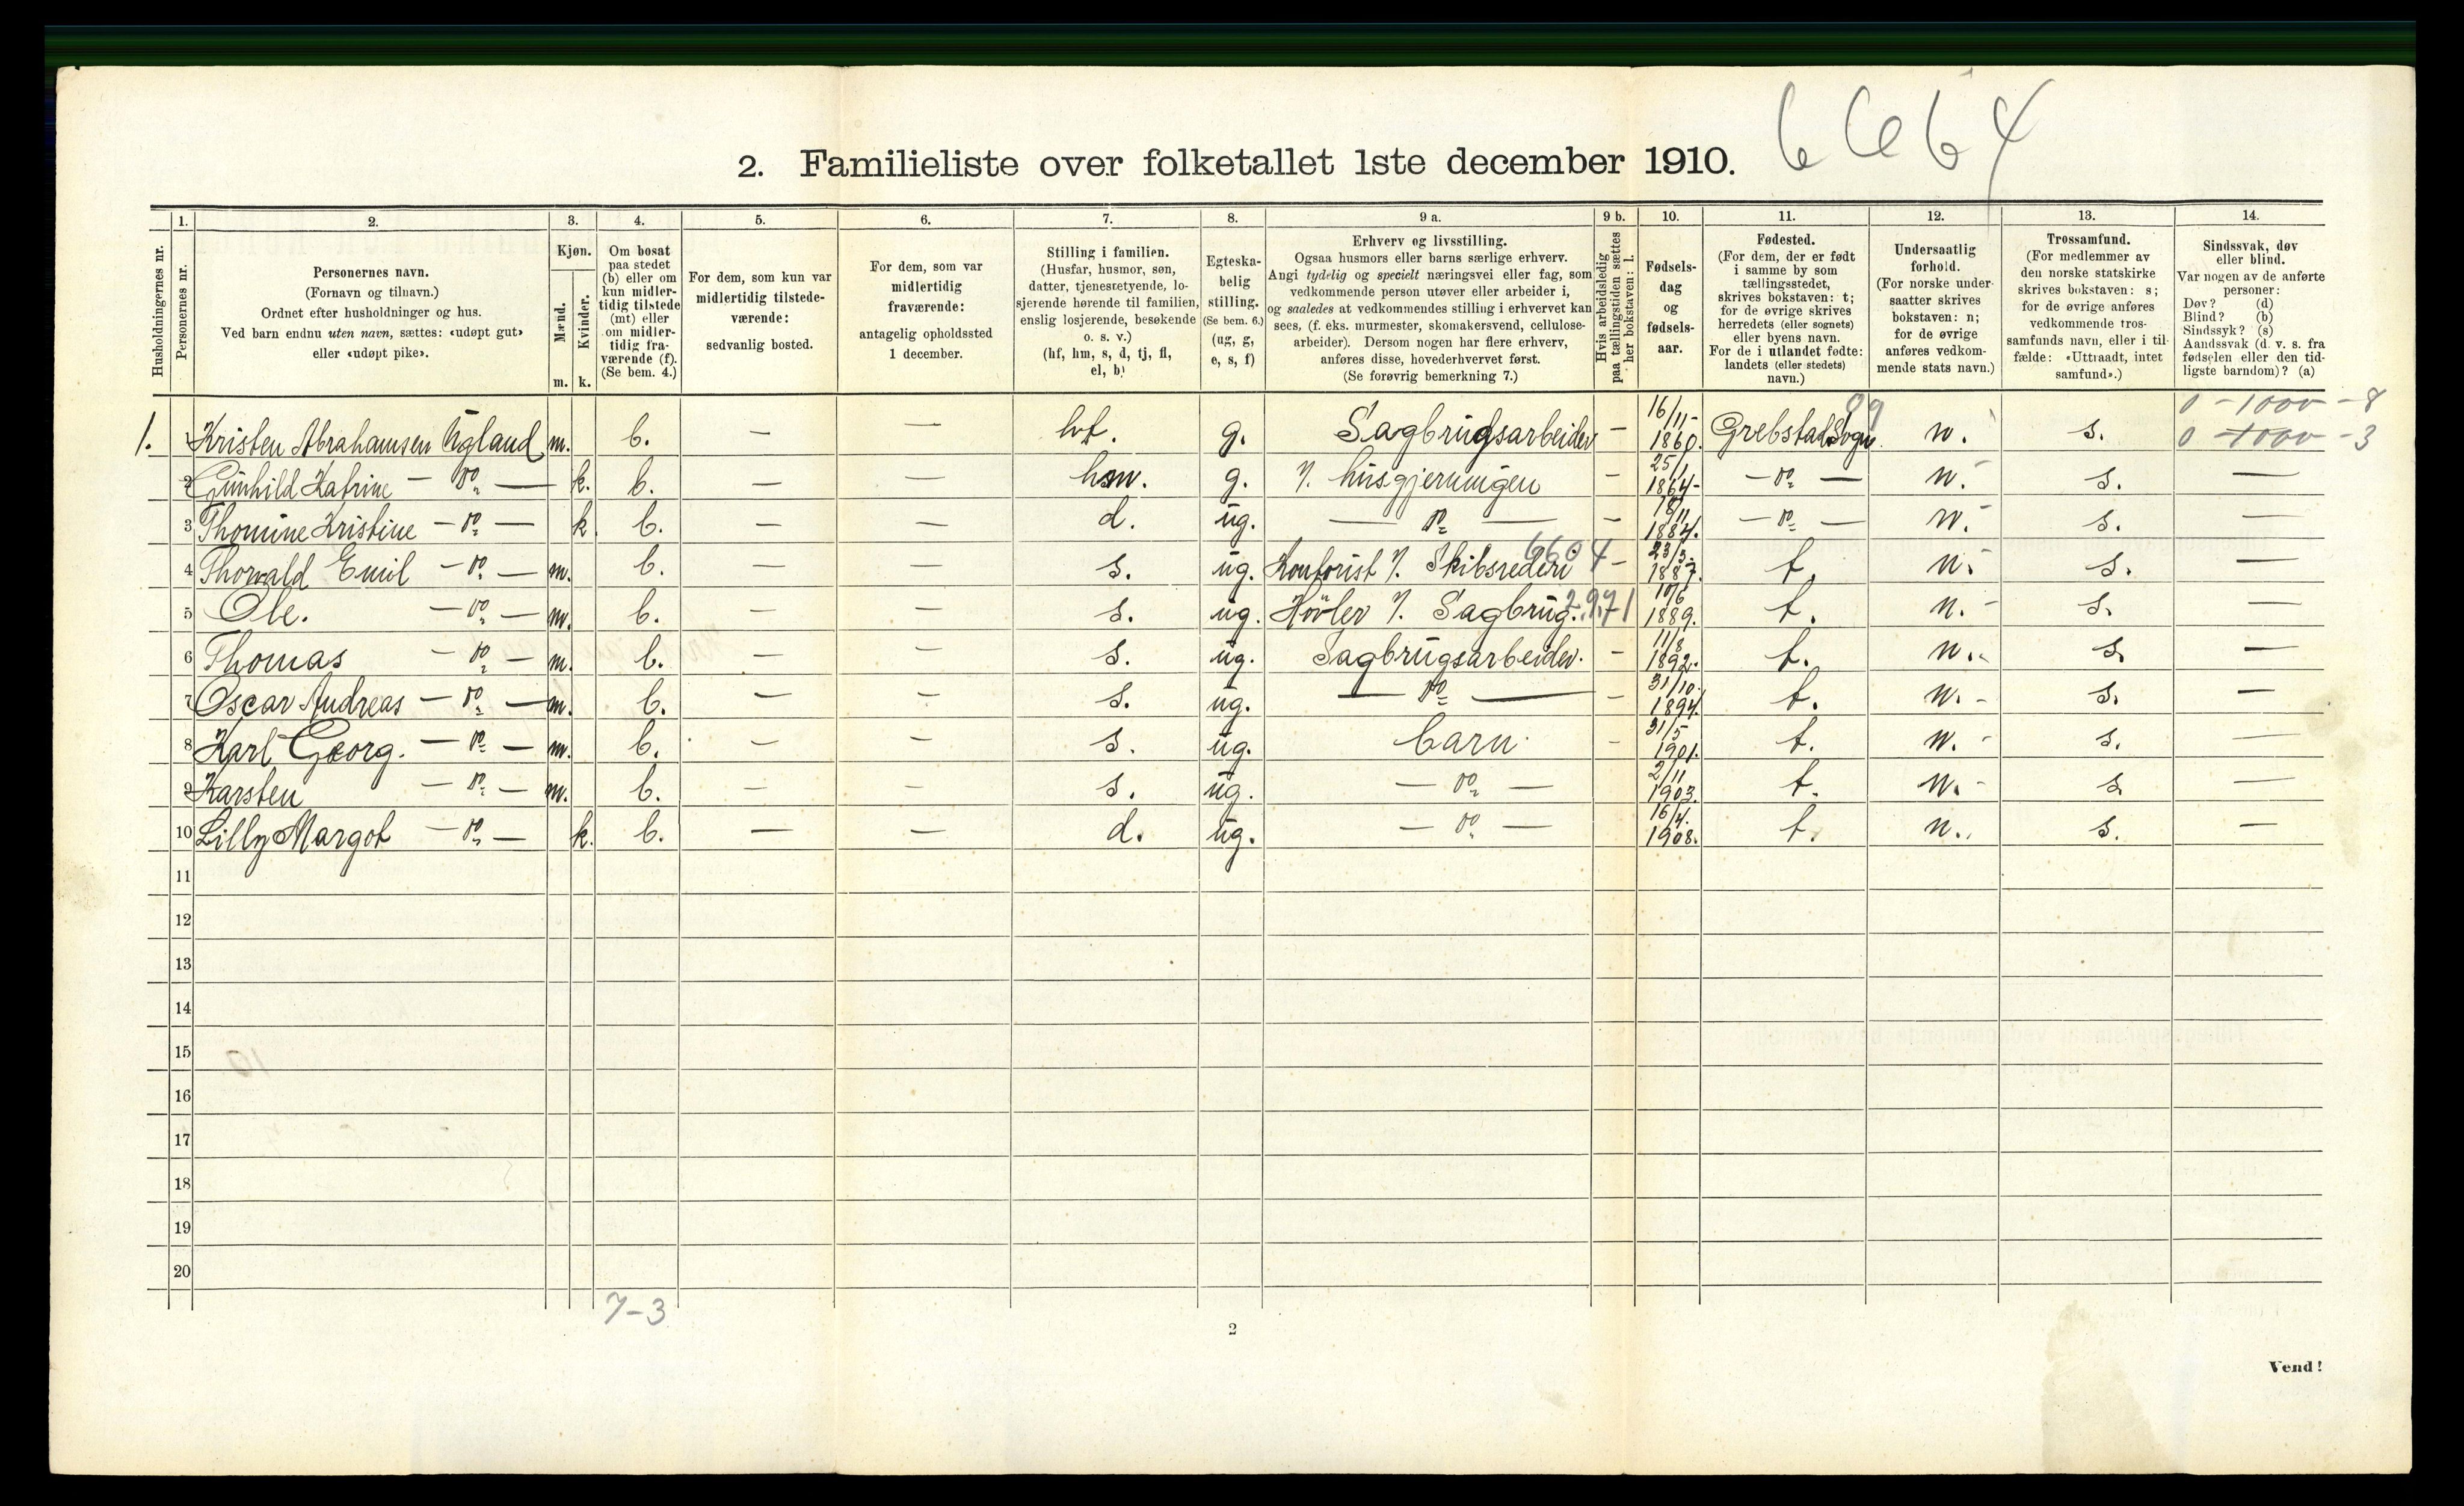 6664
2. Familieliste over folketallet 1ste december 1910.
Husholdningernes nr.
1. Personernes nr.
2. Personernes navn.
(Fornavn og tilnavn.)
Ordnet efter husholdninger og hus.
Ved barn endnu uten navn, sættes: «udøpt gut»
eller «udøpt pike».
3. Kjøn.
Mænd. m.
Kvinder. k.
4. Om bosat
paa stedet
(b) eller om
kun midler-
tidig tilstede
(mt) eller
om midler-
tidig fra-
værende (f).
(Se bem. 4.)
5. For dem, som kun var
midlertidig tilstede-
værende:
sedvanlig bosted.
6. For dem, som var
midlertidig
fraværende:
antagelig opholdssted
1 december.
7. Stilling i familien.
(Husfar, husmor, søn,
datter, tjenestetyende, lo-
sjerende hørende til familien,
enslig losjerende, besøkende
o. s. v.)
(hf, hm, s, d, tj, fl,
el, b)
8. Egteska-
belig
stilling.
(Se bem. 6.)
(ug, g,
e, s, f)
9 a. Erhverv og livsstilling.
Ogsaa husmors eller barns særlige erhverv.
Angi tydelig og specielt næringsvei eller fag, som
vedkommende person utøver eller arbeider i,
og saaledes at vedkommendes stilling i erhvervet kan
sees, (f. eks. murmester, skomakersvend, cellulose-
arbeider). Dersom nogen har flere erhverv,
anføres disse, hovederhvervet først.
(Se forøvrig bemerkning 7.)
9 b. Hvis arbeidsledig
paa tællingstiden sættes
her bokstaven: l.
10. Fødsels-
dag
og
fødsels-
aar.
11. Fødested.
(For dem, der er født
i samme by som
tællingsstedet,
skrives bokstaven: t;
for de øvrige skrives
herredets (eller sognets)
eller byens navn.
For de i utlandet fødte:
landets (eller stedets)
navn.)
12. Undersaatlig
forhold.
(For norske under-
saatter skrives
bokstaven: n;
for de øvrige
anføres vedkom-
mende stats navn.)
13. Trossamfund.
(For medlemmer av
den norske statskirke
skrives bokstaven: s;
for de øvrige anføres
vedkommende tros-
samfunds navn, eller i til-
fælde: «Uttraadt, intet
samfund».)
14. Sindssvak, døv
eller blind.
Var nogen av de anførte
personer:
Døv? (d)
Blind? (b)
Sindssyk? (s)
Aandssvak (d. v. s. fra
fødselen eller den tid-
ligste barndom)? (a)
09 0 - 1000 - 8
1. 1 Kristen Abrahamsen Ugland m. b. — — hf. g. Sagbrugsarbeider — 16/11- 1860. Grebstad Sogn. n. s. 0 - 1000 - 3
2 Gunhild Katrine — do — k. b. — — hm. g. I. husgjerningen — 25/1 1864- — do — n. s. —
3 Thomine Kristine — do — k. b. — — d. ug. — do — — 18/11 1884. — do — n. s. —
4 Thorvald Emil — do — m. b. — — s. ug. Kontorist I. Skibsrederi 6604 — 23/3- 1887. t. n. s. —
5 Ole. — do — m. b. — — s. ug. Høvler I. Sagbrug. 2971 10/6 1889. t. n. s. —
6 Thomas — do — m. b. — — s. ug. Sagbrugsarbeider. — 11/8 1892. t. n. s. —
7 Oscar Andreas — do — m. b. — — s. ug. — do — — 31/10. 1894. t. n. s. —
8 Karl Georg. — do — m. b. — — s. ug. barn — 31/5 1901. t. n. s. —
9 Karsten — do — m. b. — — s. ug. — do — 2/11 1903. t. n. s —
10 Lilly Margot — do — k. b. — — d. ug. — do — 16/4. 1908. t. n. s. —
11
12
13
14
15
16
17
18
19
20
7-3
2
Vend!